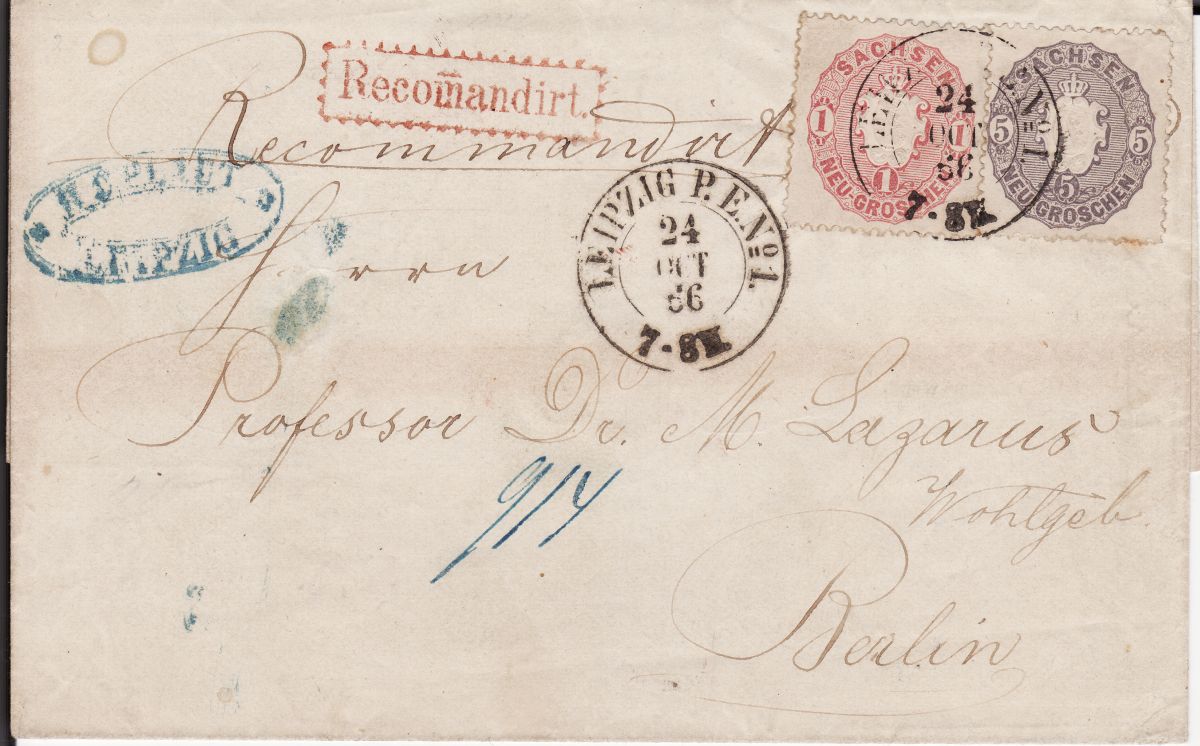 Recom̄andirt.
Recommandirt
SACHSEN
1 1
1
NEU-GROSCHEN
SACHSEN
5 5
5
NEU-GROSCHEN
24
OCT
66
7-8N.
H. C. PLAUT
LEIPZIG
LEIPZIG P.E.No1.
24
OCT
66
7-8N.
Herrn
Professor Dr. M. Lazarus
Wohlgeb.
9/4
Berlin